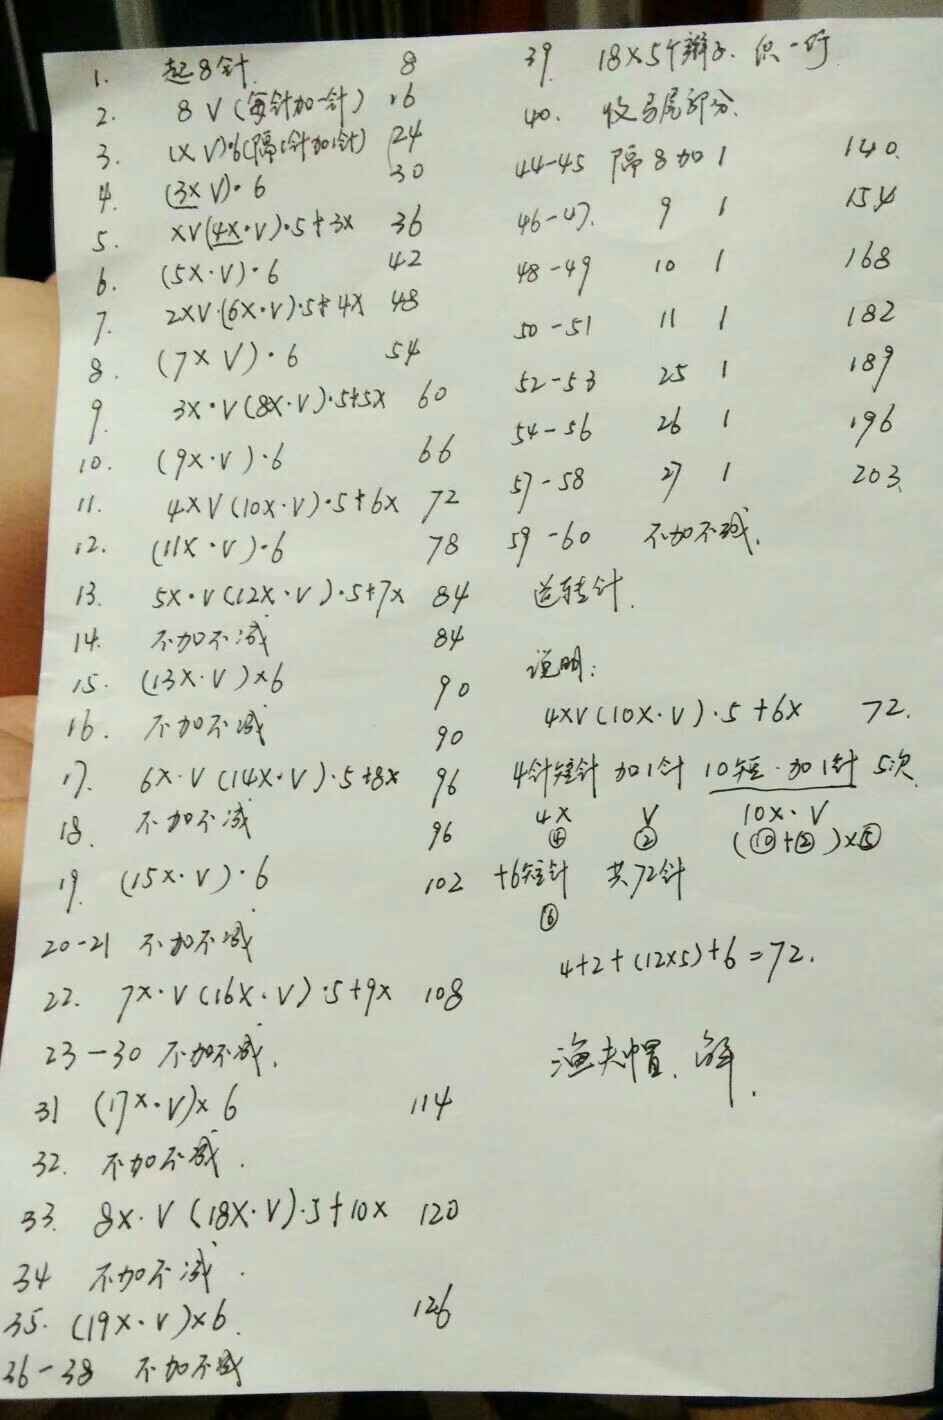 1. 起8针 8
2. 8V(每针加一针) 16
3. (XV)·6(隔1针加1针) 24
4. (3XV)·6 30
5. XV(4X·V)·5+3X 36
6. (5X·V)·6 42
7. 2XV·(6X·V)·5+4X 48
8. (7XV)·6 54
9. 3X·V(8X·V)·5+5X 60
10. (9X·V)·6 66
11. 4XV(10X·V)·5+6X 72
12. (11X·V)·6 78
13. 5X·V(12X·V)·5+7X 84
14. 不加不减 84
15. (13X·V)×6 90
16. 不加不减 90
17. 6X·V(14X·V)·5+8X 96
18. 不加不减 96
19. (15X·V)·6 102
20-21 不加不减
22. 7X·V(16X·V)·5+9X 108
23-30 不加不减.
31 (17X·V)×6 114
32. 不加不减.
33. 8X·V(18X·V)·5+10X 120
34 不加不减.
35. (19X·V)×6. 126
36-38 不加不减
39. 18×5个辫子. 织一行
40. 收马尾部分.
44-45 隔8加1 140.
46-47. 9 1 154
48-49 10 1 168
50-51 11 1 182
52-53 25 1 189
54-56 26 1 196
57-58 27 1 203.
59-60 不加不减.
逆转针.
说明:
4XV(10X·V)·5+6X 72.
4针短针 加1针 10短·加1针 5次
4X V 10X·V
④ ② (⑩+②)×⑤
+6短针 共72针
⑥
4+2+(12×5)+6=72.
渔夫帽.